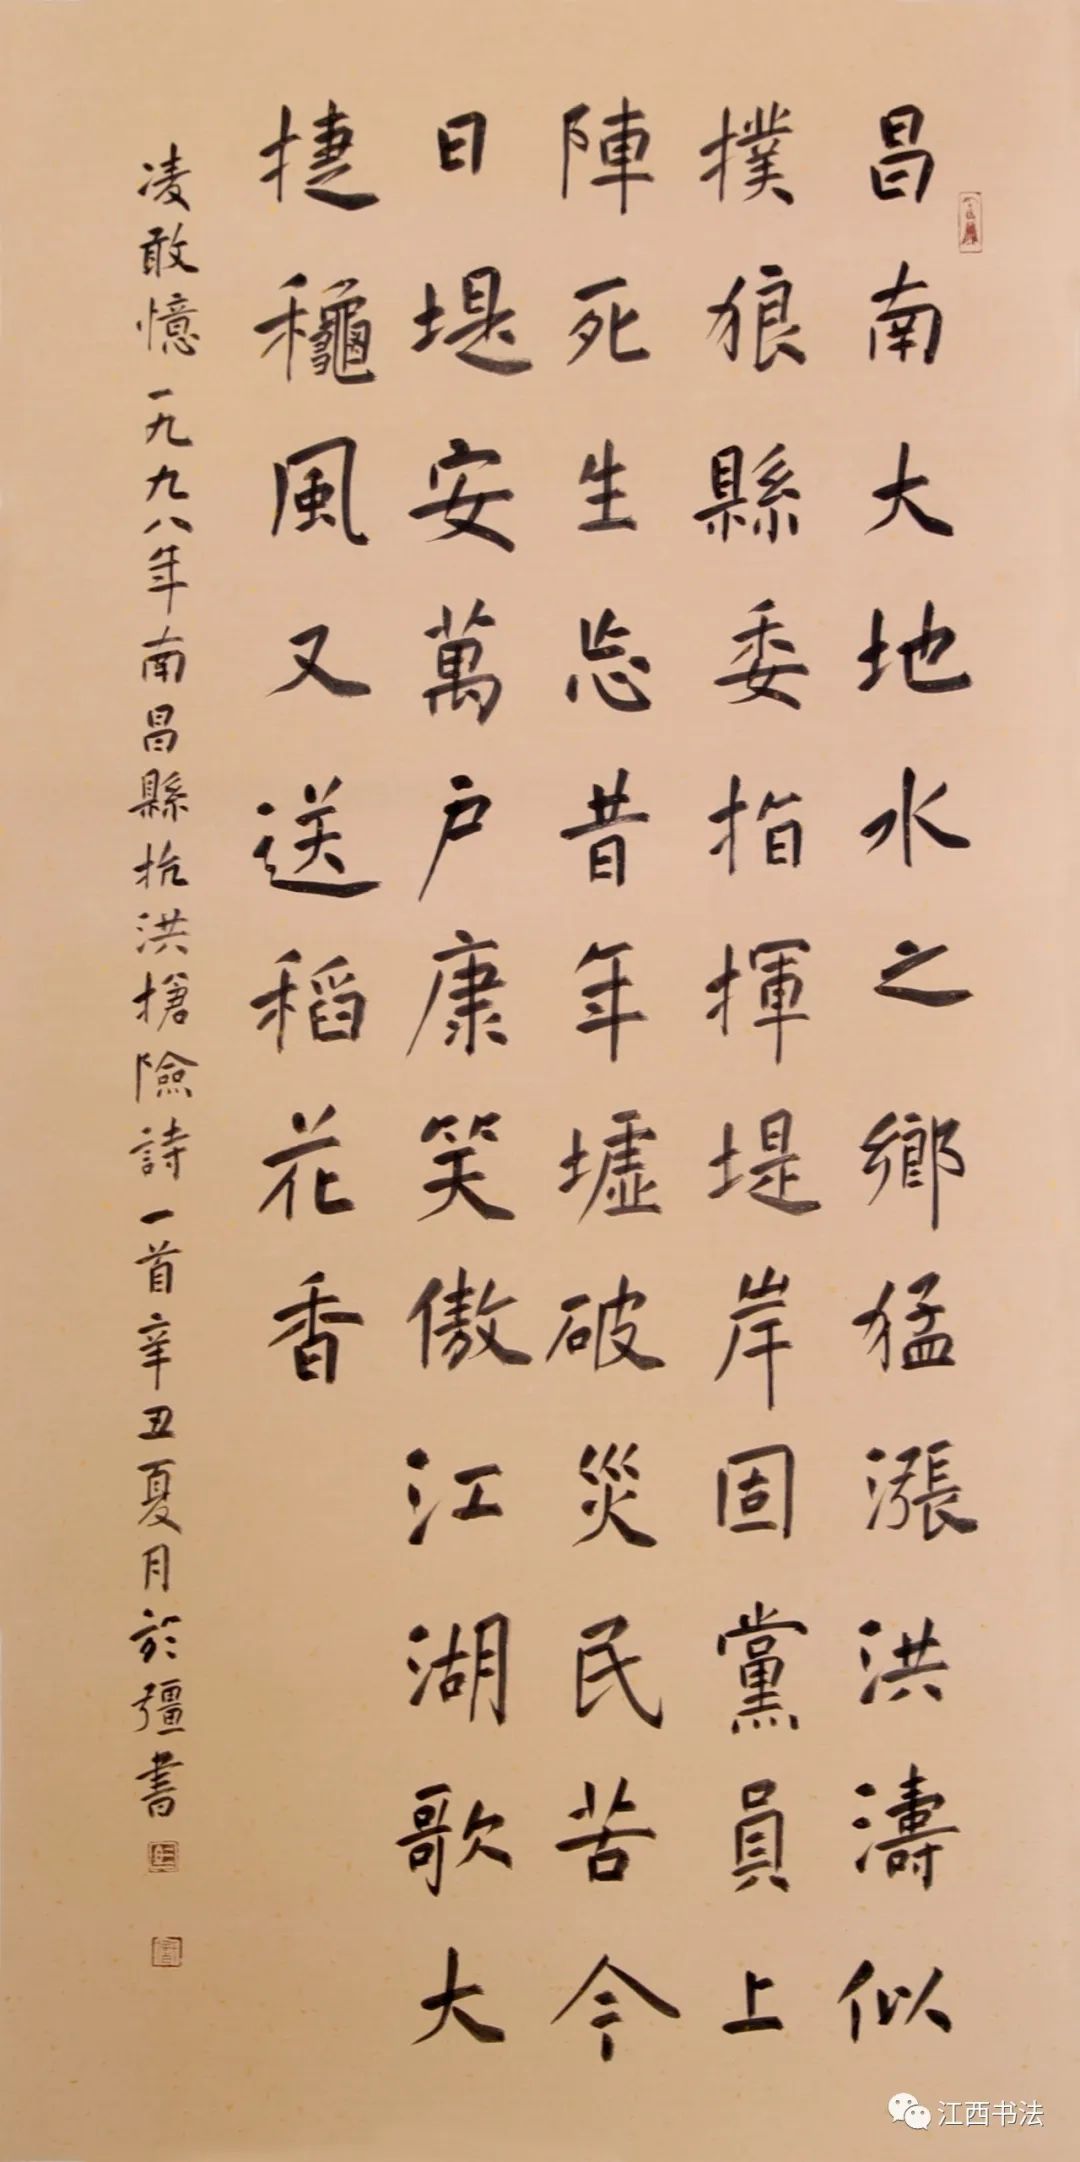 昌南大地水之鄉猛漲洪濤似
撲狼縣委指揮堤岸固黨員上
陣死生忘昔年墟破災民苦今
日堤安萬户康笑傲江湖歌大
捷龝風又送稻花香
凌敢憶一九九八年南昌縣抗洪搶險詩一首辛丑夏月於彊書
江西书法